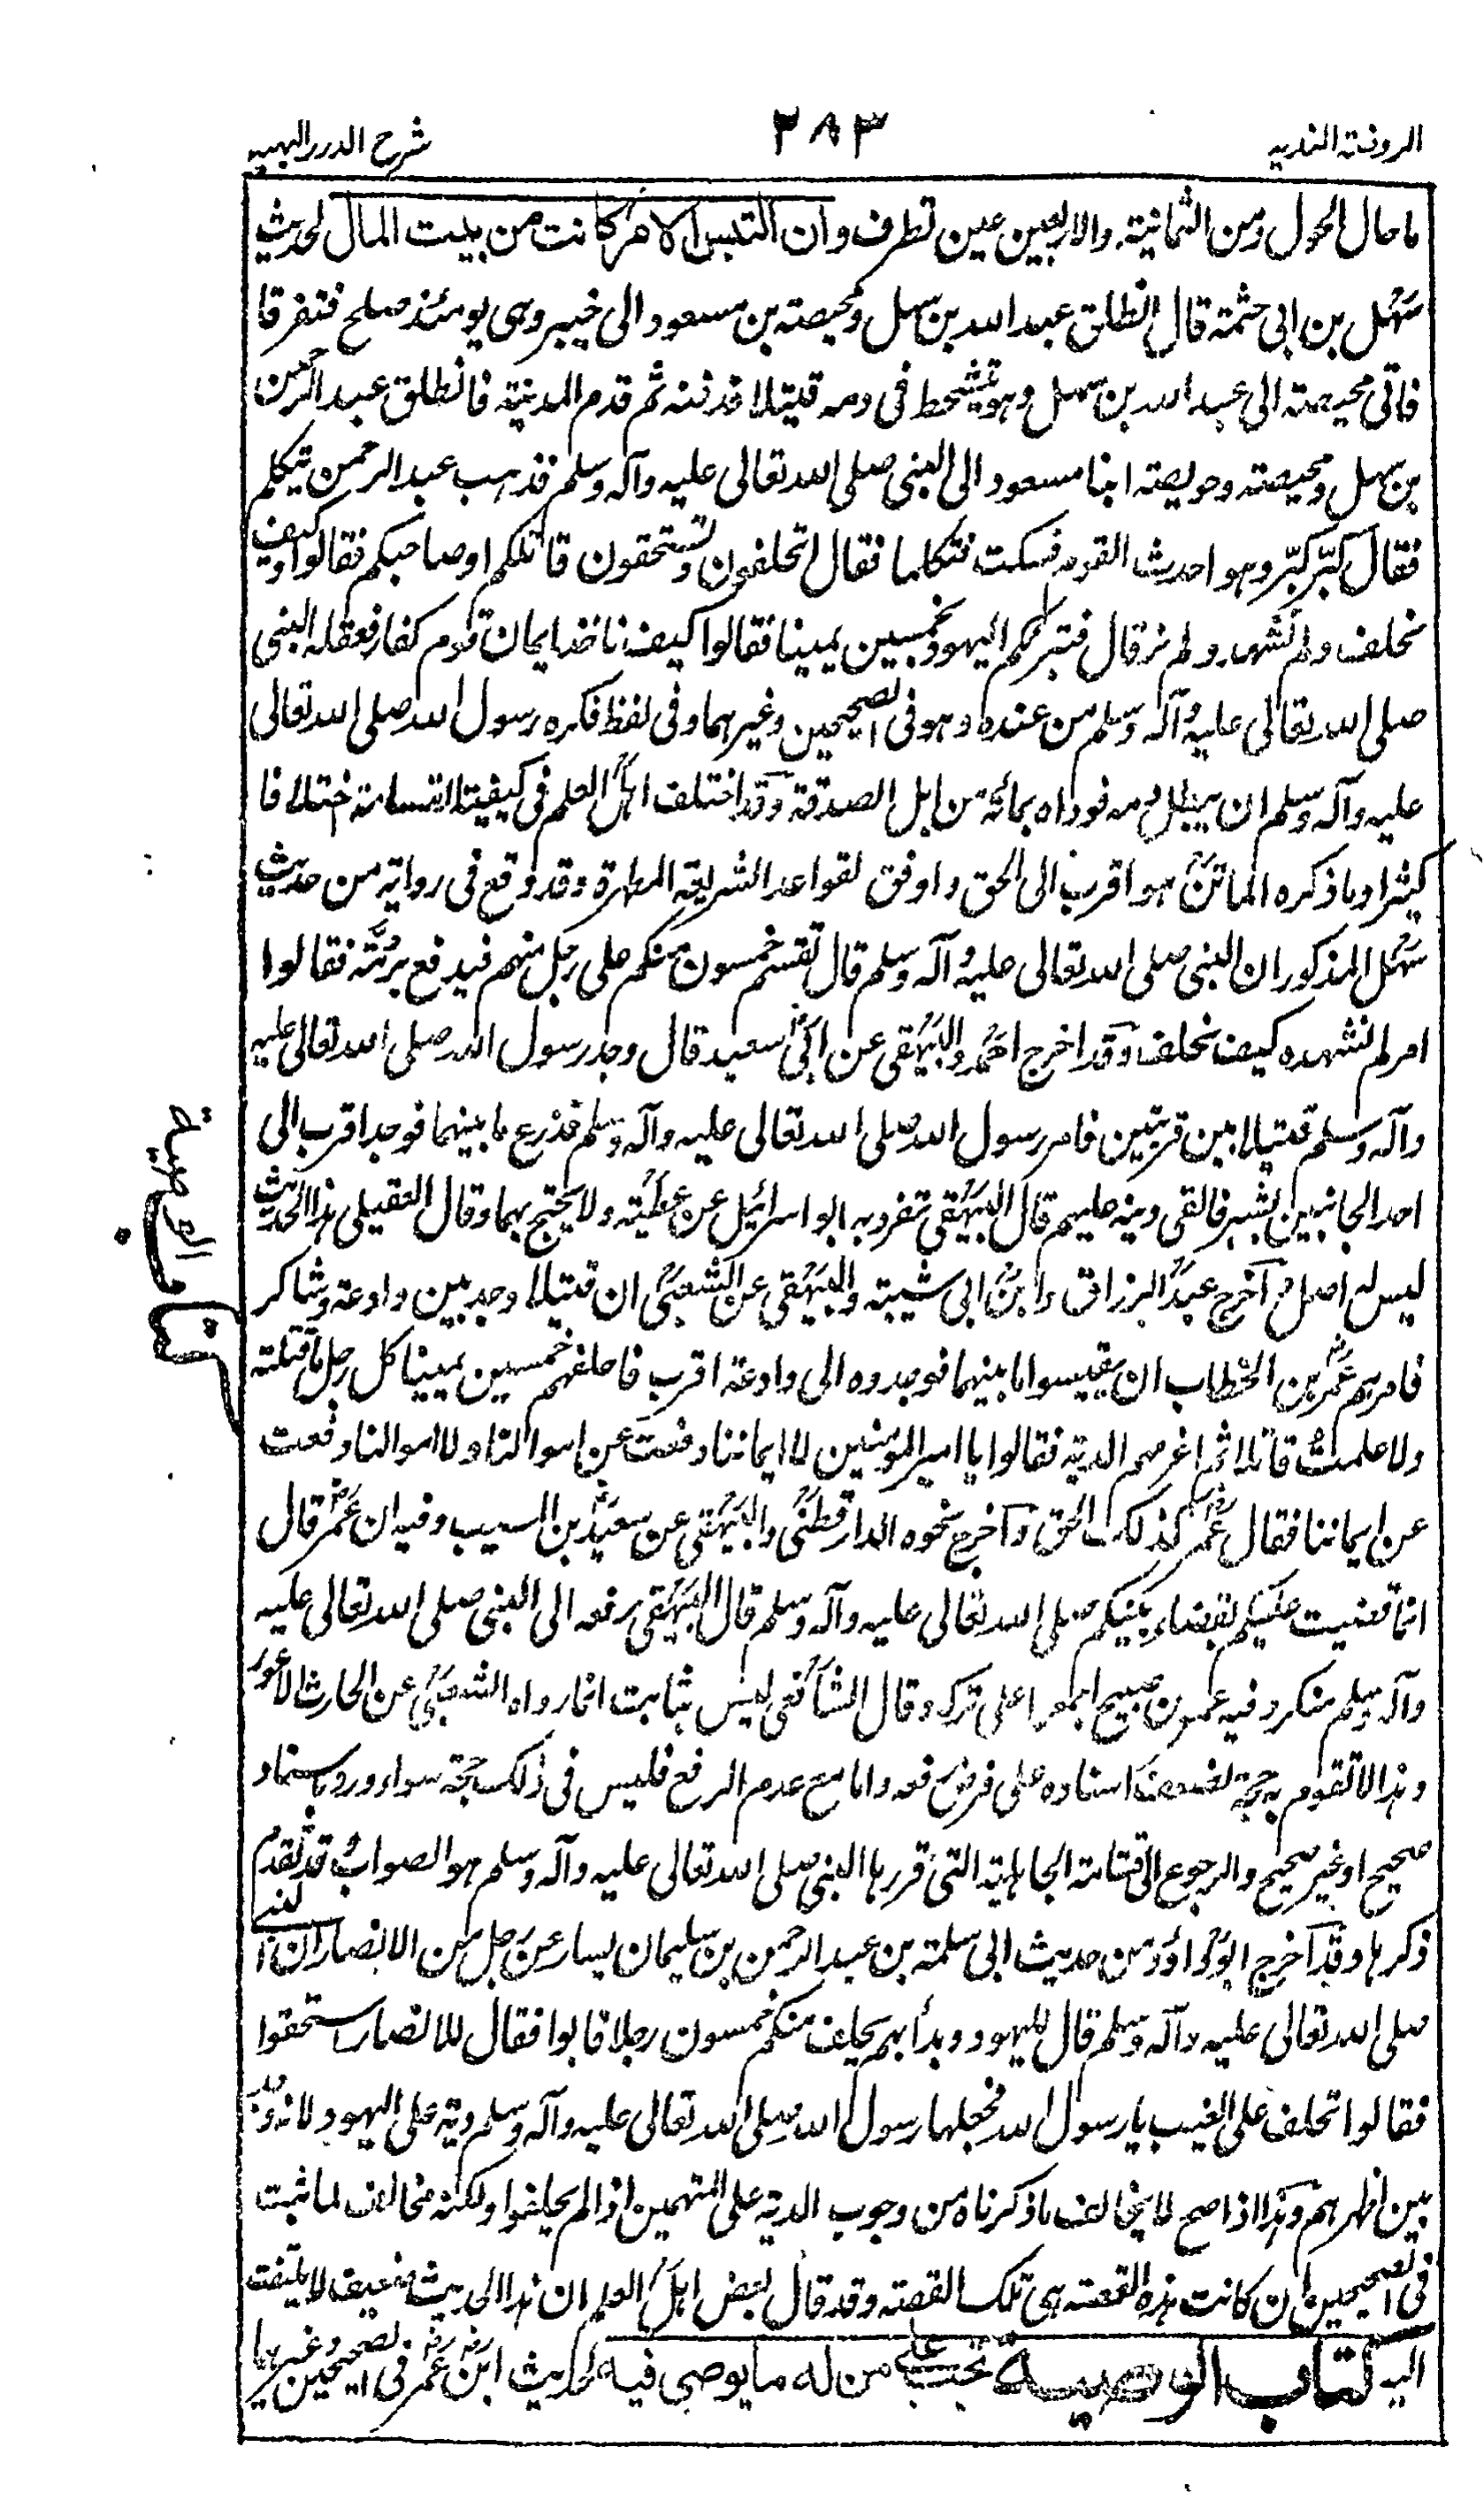 الروضة الندية
٣٨٣
شرح الدرر البهية
ما حال الحول ومن الثمانية والاربعين عين تطرف وان التبس الامر كانت من بيت المال لحديث
سهل بن ابي حثمة قال انطلق عبد الله بن سهل ومحيصة بن مسعود الى خيبر وهى يومئذ صلح فتفرقا
فاتى محيصة الى عبد الله بن سهل وهو يتشحط فى دمه قتيلا فدفنه ثم قدم المدينة فانطلق عبد الرحمن
بن سهل ومحيصة وحويصة ابنا مسعود الى النبى صلى الله تعالى عليه وآله وسلم فذهب عبد الرحمن يتكلم
فقال كبّر كبّر وهو احدث القوم فسكت فتكلما فقال اتحلفون وتستحقون قاتلكم او صاحبكم فقالوا وكيف
نحلف ولم نشهد ولم نر قال فتبرئكم اليهود بخمسين يمينا فقالوا كيف ناخذ ايمان قوم كفار فعقله النبى
صلى الله تعالى عليه وآله وسلم من عنده وهو فى الصحيحين وغيرهما وفى لفظ فكره رسول الله صلى الله تعالى
عليه وآله وسلم ان يبطل دمه فوداه بمائة من ابل الصدقة وقد اختلف اهل العلم فى كيفية القسامة اختلافا
كثيرا وما ذكره الماتن هو اقرب الى الحق واوفق لقواعد الشريعة المطهرة وقد وقع فى رواية من حديث
سهل المذكور ان النبى صلى الله تعالى عليه وآله وسلم قال تقسم خمسون منكم على رجل منهم فيدفع برمّته فقالوا
امر لم نشهده كيف نحلف وقد اخرج احمد والبيهقى عن ابى سعيد قال وجد رسول الله صلى الله تعالى عليه
وآله وسلم قتيلا بين قريتين فامر رسول الله صلى الله تعالى عليه وآله وسلم فذرع ما بينهما فوجد اقرب الى
احد الجانبين بشبر فالقى ديته عليهم قال البيهقى تفرد به ابو اسرائيل عن عطية ولا يحتج بهما وقال العقيلى هذا الحديث
ليس له اصل واخرج عبد الرزاق وابن ابى شيبة والبيهقى عن الشعبى ان قتيلا وجد بين وادعة وشاكر
فامرهم عمر بن الخطاب ان يقيسوا ما بينهما فوجدوه الى وادعة اقرب فاحلفهم خمسين يمينا كل رجل ما قتلته
ولا علمت قاتلا ثم اغرمهم الدية فقالوا يا امير المؤمنين لا ايماننا دفعت عن اموالنا ولا اموالنا دفعت
عن ايماننا فقال عمر كذلك الحق واخرج نحوه الدارقطنى والبيهقى عن سعيد بن المسيب وفيه ان عمر قال
انما قضيت عليكم بقضاء نبيكم صلى الله تعالى عليه وآله وسلم قال البيهقى رفعه الى النبى صلى الله تعالى عليه
وآله وسلم منكر وفيه عمر بن صبيح اجمعوا على تركه وقال الشافعى ليس بثابت انما رواه الشعبى عن الحارث الاعور
وهذا لا تقوم به حجة لضعف اسناده على فرض رفعه واما مع عدم الرفع فليس فى ذلك حجة سواء ورد باسناد
صحيح او غير صحيح والرجوع الى قسامة الجاهلية التى قررها النبى صلى الله تعالى عليه وآله وسلم هو الصواب وقد تقدم
ذكرها وقد اخرج ابو داؤد من حديث ابى سلمة بن عبد الرحمن بن سليمان يسار عن رجل من الانصار ان النبى
صلى الله تعالى عليه وآله وسلم قال لليهود وبدأ بهم يحلف منكم خمسون رجلا فابوا فقال للانصار استحقوا
فقالوا نحلف على الغيب يا رسول الله فجعلها رسول الله صلى الله تعالى عليه وآله وسلم دية على اليهود لانه وجد
بين اظهرهم وهذا اذا صح لا يخالف ما ذكرناه من وجوب الدية على المتهمين اذا لم يحلفوا ولكنه مخالف لما ثبت
فى الصحيحين ان كانت هذه القصة هى تلك القصة وقد قال بعض اهل العلم ان هذا الحديث ضعيف لا يلتفت
اليه كتاب الوصية تجب على من له ما يوصى فيه لحديث ابن عمر فى الصحيحين وغيرهما
كتاب الوصية